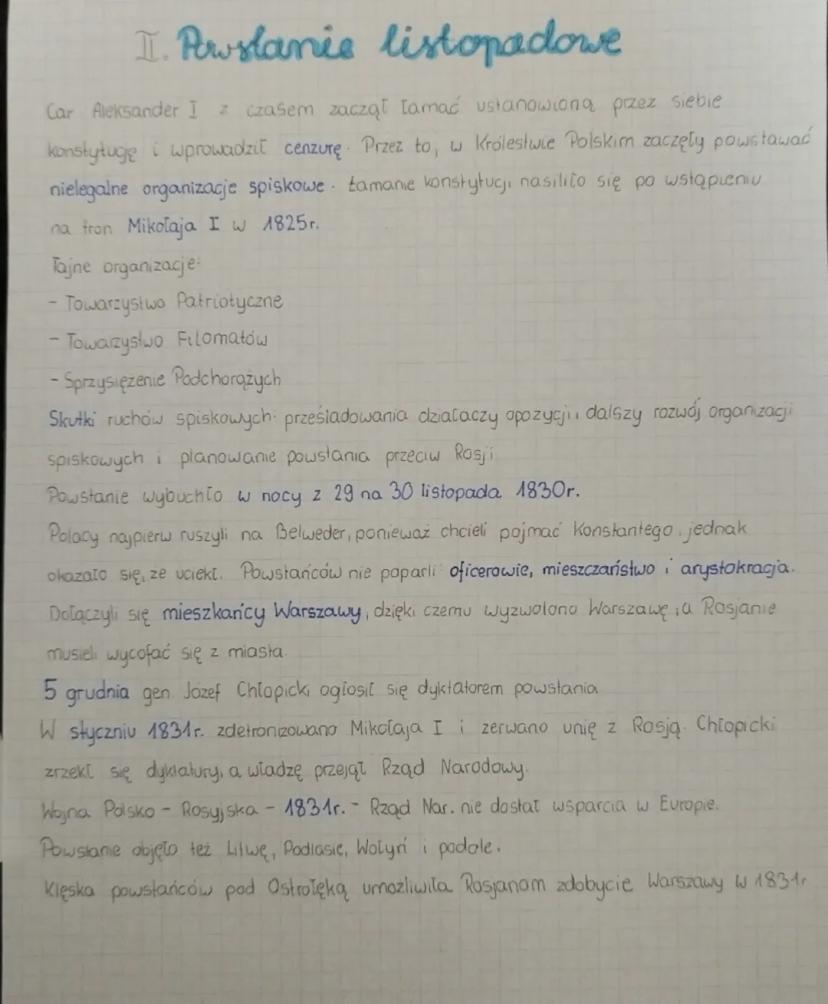 II. Powstanie listopadowe
Car Aleksander I z czasem zaczął łamać ustanowioną przez siebie
konstytucję i wprowadził cenzurę. Przez to, w Królestwie Polskim zaczęły powstawać
nielegalne organizacje spiskowe. Łamanie konstytucji nasiliło się po wstąpieniu
na tron Mikołaja I w 1825r.
Tajne organizacje:
- Towarzystwo Patriotyczne
- Towarzystwo Filomatów
- Sprzysiężenie Podchorążych
Skutki ruchów spiskowych: prześladowania działaczy opozycji, dalszy rozwój organizacji
spiskowych i planowanie powstania przeciw Rosji
Powstanie wybuchło w nocy z 29 na 30 listopada 1830r.
Polacy najpierw ruszyli na Belweder, ponieważ chcieli pojmać Konstantego, jednak
okazało się, że uciekł. Powstańców nie poparli oficerowie, mieszczaństwo i arystokracja.
Dołączyli się mieszkańcy Warszawy, dzięki czemu wyzwolono Warszawę, a Rosjanie
musieli wycofać się z miasta.
5 grudnia gen Józef Chłopicki ogłosił się dyktatorem powstania
W styczniu 1831r. zdetronizowano Mikołaja I i zerwano unię z Rosją. Chłopicki
zrzekł się dyktatury, a władzę przejął Rząd Narodowy.
Wojna Polsko - Rosyjska - 1831r. - Rząd Nar. nie dostał wsparcia w Europie.
Powstanie objęło też Litwę, Podlasie, Wołyń i podole.
Klęska powstańców pod Ostrołęką umożliwiła Rosjanom zdobycie Warszawy w 1831r